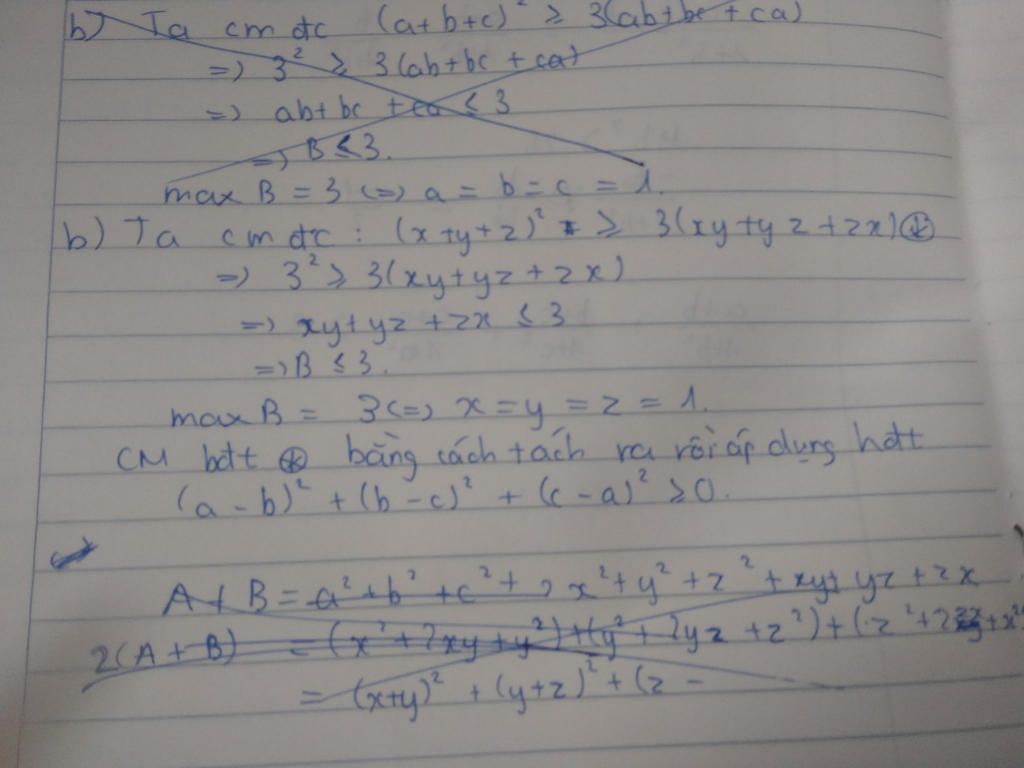 b) Ta cm đc (a+b+c)² ≥ 3(ab+bc+ca)
=) 3² ≥ 3(ab+bc+ca)
=) ab+bc+ca ≤ 3
=) B ≤ 3.
max B = 3 (=) a = b = c = 1.
b) Ta cm đc : (x+y+z)² ≥ 3(xy+yz+zx) (*)
=) 3² ≥ 3(xy+yz+zx)
=) xy+yz+zx ≤ 3
=) B ≤ 3.
max B = 3 (=) x = y = z = 1.
CM bđt (*) bằng cách tách ra rồi áp dụng hđt
(a-b)² + (b-c)² + (c-a)² ≥ 0.
A+B = a²+b²+c²+ x²+y²+z²+xy+yz+zx
2(A+B) = (x²+2xy+y²)+(y²+2yz+z²)+(z²+2zx+x²
= (x+y)² + (y+z)² + (z -